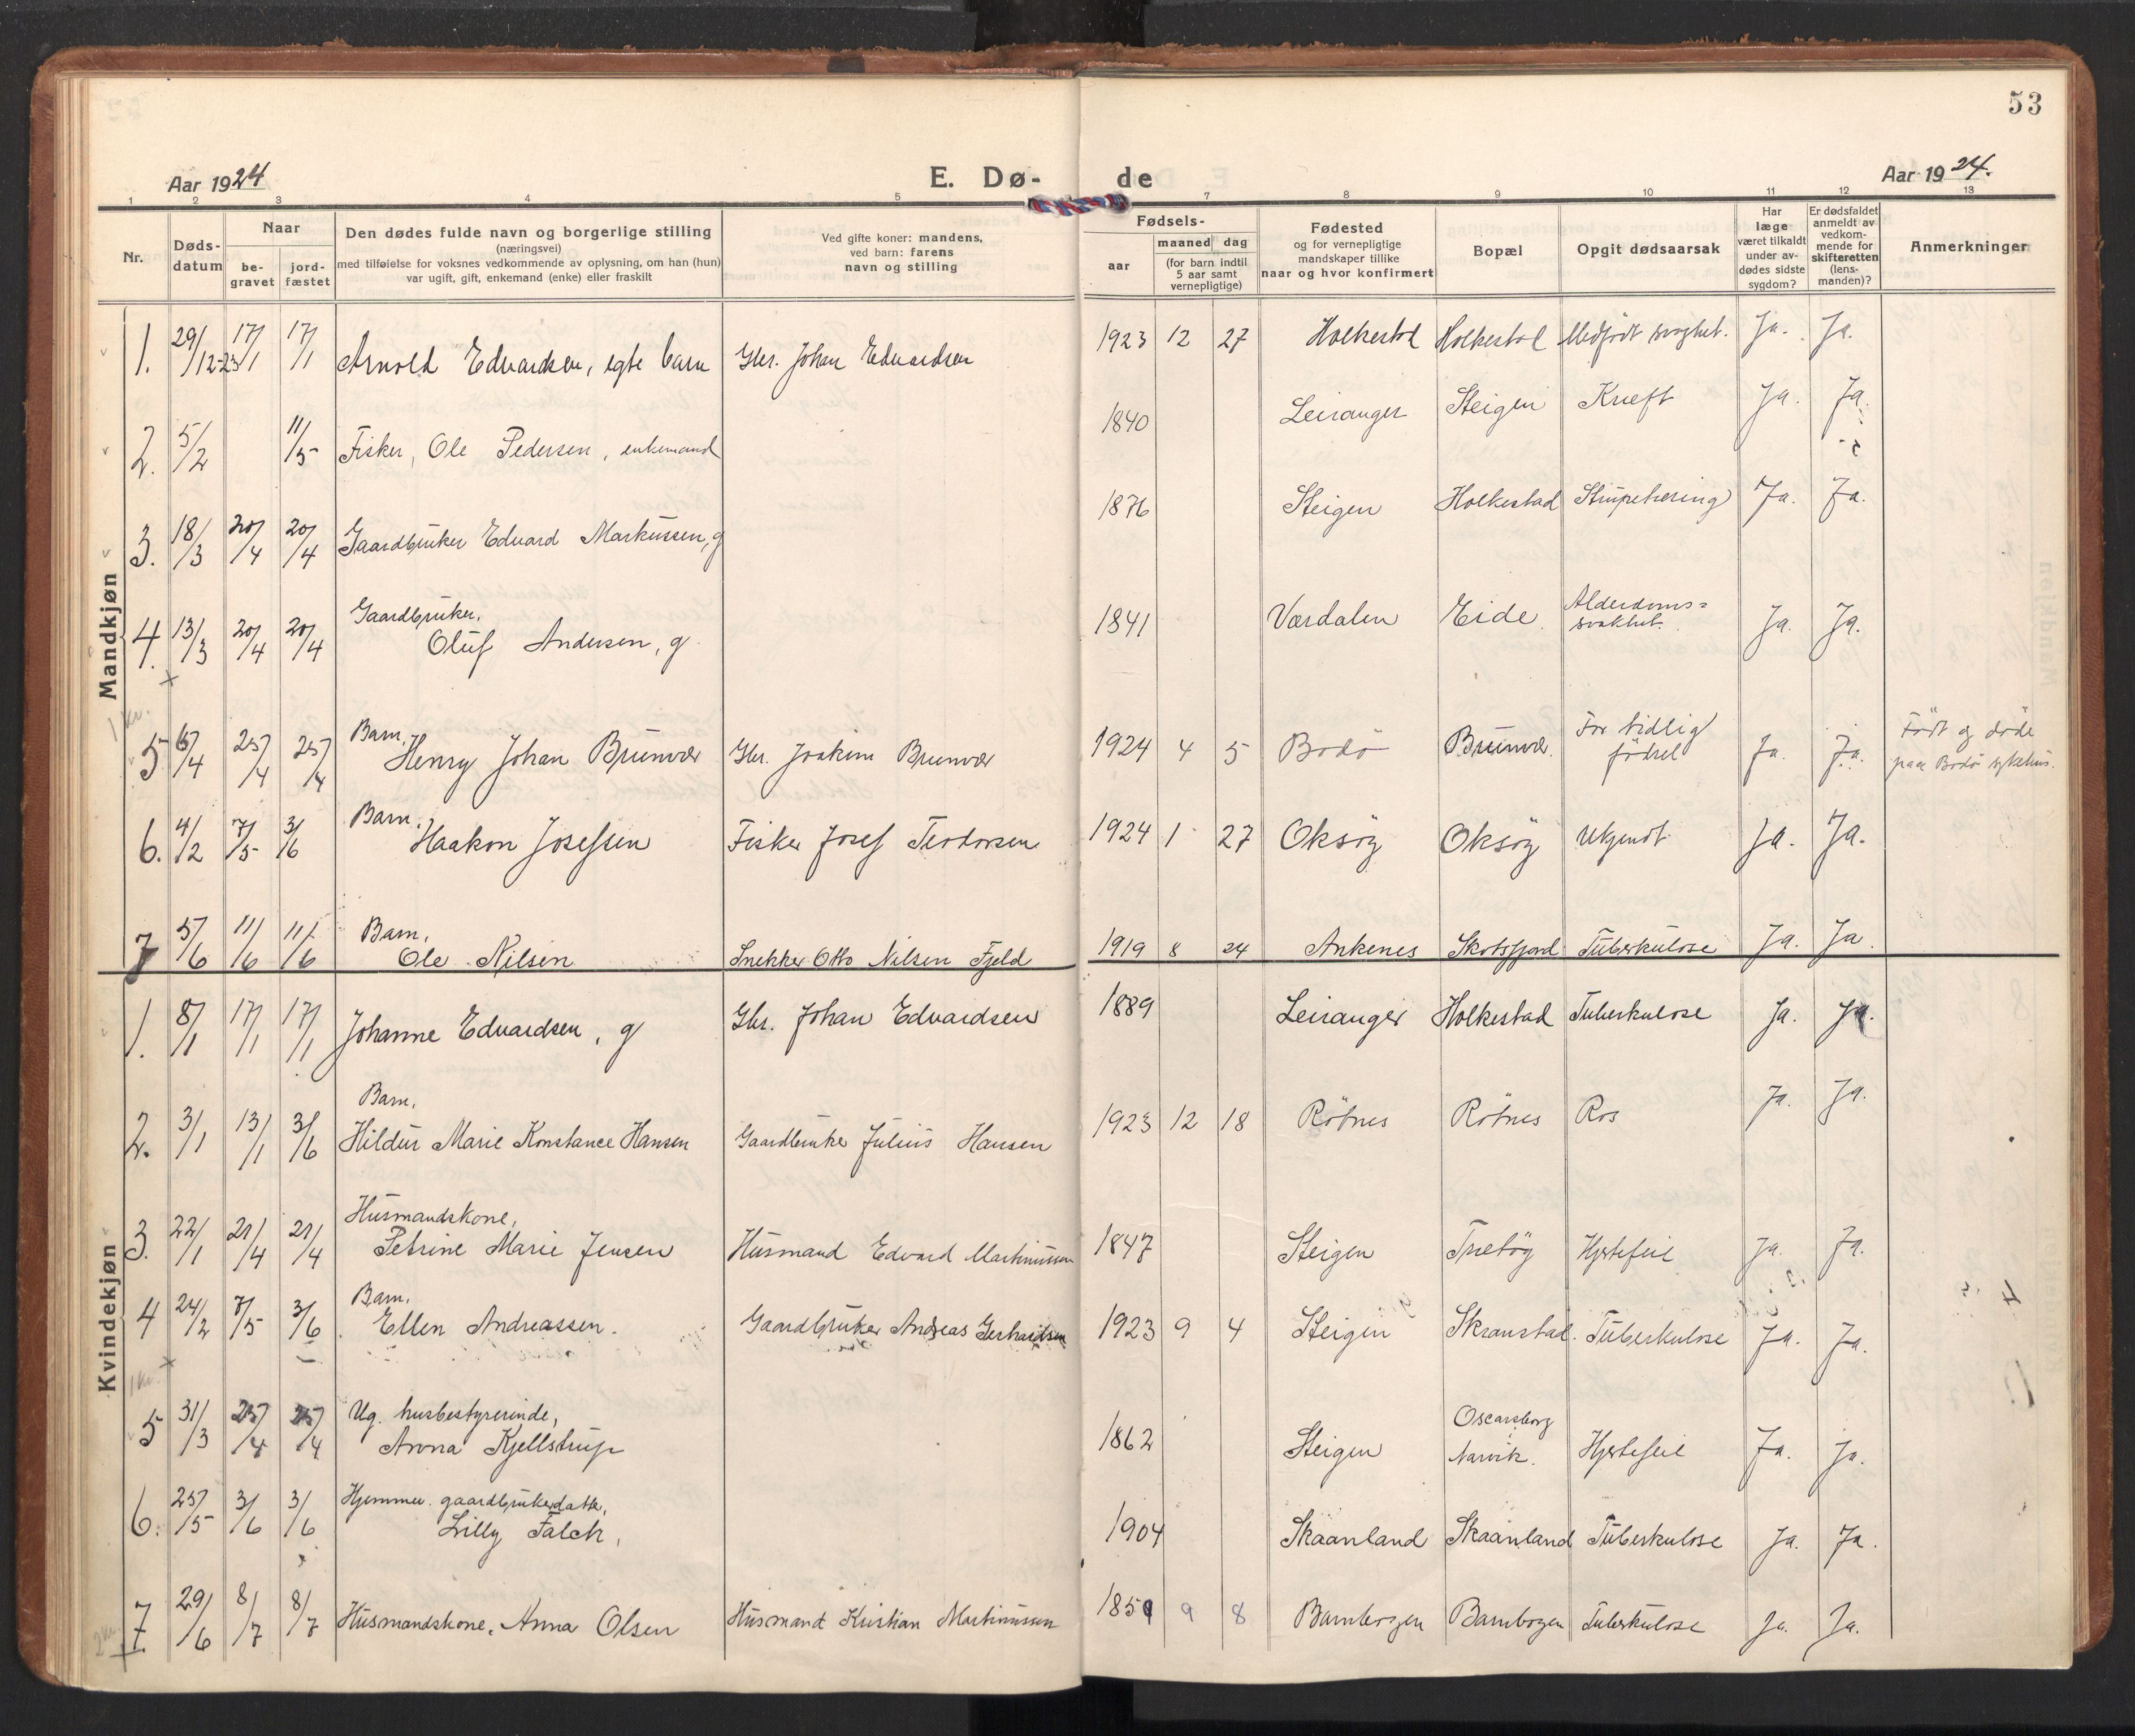 53
Aar 1924
E. Dø- de
Aar 1924.
1 2 3 4 5 7 8 9 10 11 12 13
Nr.
Døds-
datum
Naar
be-
gravet
jord-
fæstet
Den dødes fulde navn og borgerlige stilling
(næringsvei)
med tilføielse for voksnes vedkommende av oplysning, om han (hun)
var ugift, gift, enkemand (enke) eller fraskilt
Ved gifte koner: mandens,
ved barn: farens
navn og stilling
Fødsels-
aar
maaned dag
(for barn indtil
5 aar samt
vernepligtige)
Fødested
og for vernepligtige
mandskaper tillike
naar og hvor konfirmert
Bopæl
Opgit dødsaarsak
Har
læge
været tilkaldt
under av-
dødes sidste
sygdom?
Er dødsfaldet
anmeldt av
vedkom-
mende for
skifteretten
(lens-
manden)?
Anmerkninger
Mandkjøn
1. 29/12-23 17/1 17/1 Arnold Edvardsen, egte barn Gbr. Johan Edvardsen 1923 12 27 Holkestad Holkestad Medfödt svaghet. Ja. Ja.
2. 5/2 11/5 Fisker, Ole Pedersen, enkemand 1840 Leiranger Steigen Kræft Ja. Ja.
3. 18/3 20/4 20/4 Gaardbruker Edvard Markussen, g 1876 Steigen Holkestad Strupetæring Ja. Ja.
4. 13/3 20/4 20/4 Gaardbruker,
Oluf Andersen, g. 1841 Værdalen Eide. Alderdoms=
svakhet. Ja. Ja.
5 6/4 25/4 25/4 Barn,
Henry Johan Brunvær Gbr. Joakim Brunvær 1924 4 5 Bodö Brunvær. For tidlig
födsel Ja. Ja. Födt og döde
paa Bodö sykehus.
6. 4/2 7/5 3/6 Barn,
Haakon Josefsen Fisker Josef Teodorsen 1924 1 27 Oksöy Oksöy Ukjendt Ja. Ja.
7 5/6 11/6 11/6 Barn,
Ole Nilsen Snekker Otto Nilsen Fjeld 1919 8 24 Ankenes Skotsfjord Tuberkulose Ja. Ja.
Kvindekjøn
1. 8/1 17/1 17/1 Johanne Edvardsen, g Gbr. Johan Edvardsen 1889 Leiranger Holkestad Tuberkulose Ja. Ja.
2. 3/1 13/1 3/6 Barn,
Hildur Marie Konstance Hansen Gaardbruker Julius Hansen 1923 12 18 Rötnes Rötnes Ros Ja. Ja.
3. 22/1 21/4 21/4 Husmandskone,
Petrine Marie Jensen Husmand Edvard Martinussen 1847 Steigen Hjertefeil Ja. Ja.
4 24/2 7/5 3/6 Barn.
Ellen Andreassen. Gaardbruker Andreas Gerhardsen 1923 9 4 Steigen Skranstad. Tuberkulose Ja. Ja.
5 31/3 25/4 25/4 Ug. husbestyrerinde,
Anna Kjellstrup 1862 Steigen Oscarsborg
Narvik. Hjertefeil Ja. Ja.
6. 25/5 3/6 3/6 Hjemmev. gaardbrukerdatter,
Lilly Falch, 1904 Skaanland Skaanland Tuberkulose Ja. Ja.
7. 29/6 8/7 8/7 Husmandskone, Anna Olsen Husmand Kristian Martinussen 1859 9 8 Barnbogen Barnbogen Tuberkulose Ja. Ja.